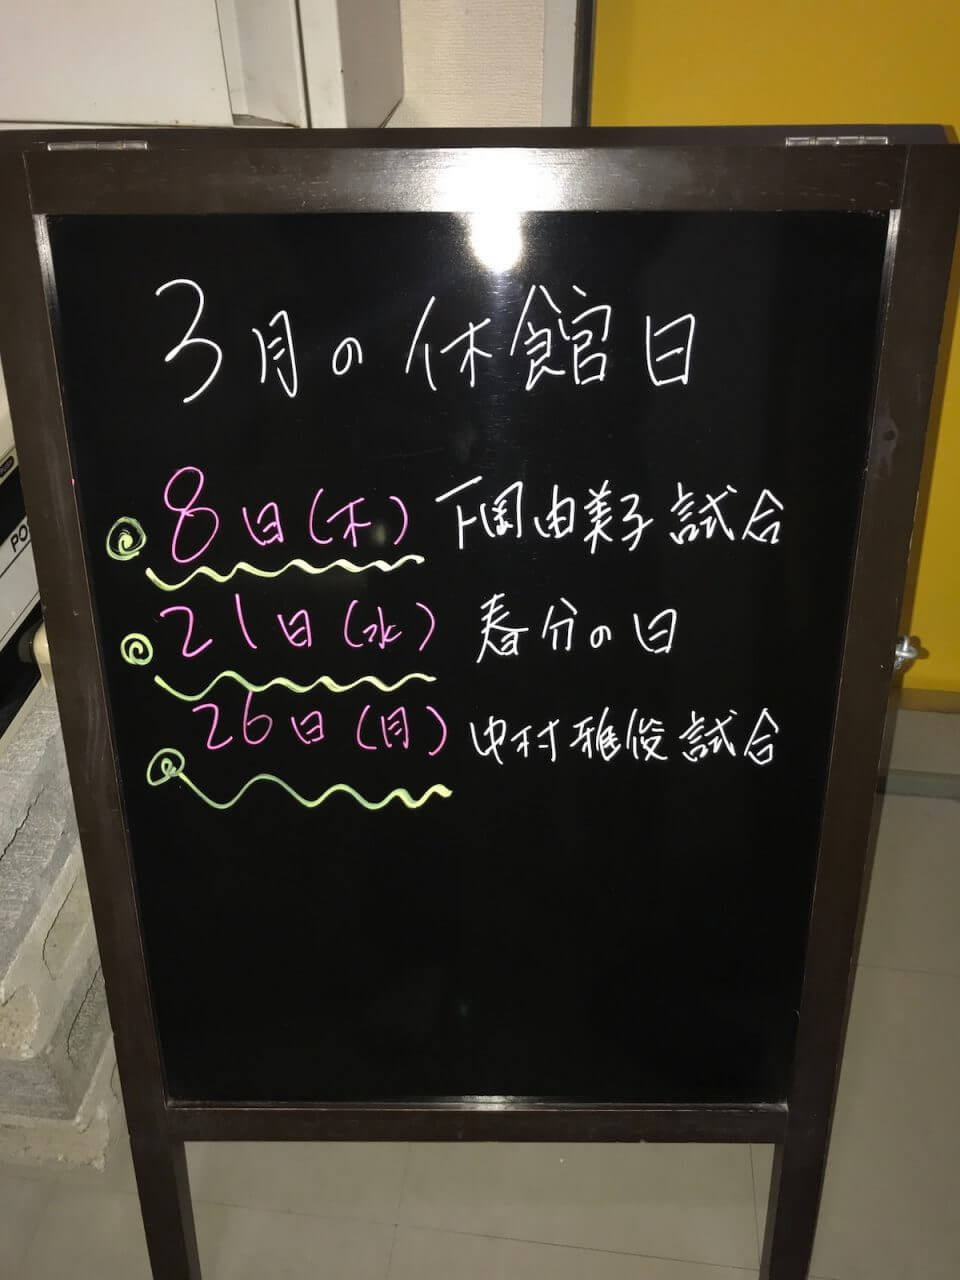 3月の休館日
8日(木) 下岡由美子試合
21日(水) 春分の日
26日(月) 中村雅俊試合